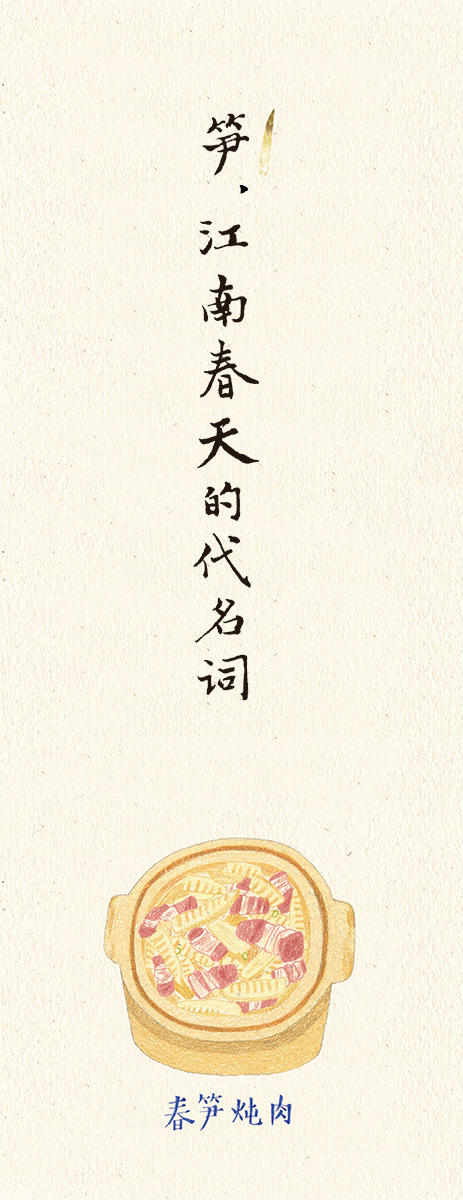 笋，江南春天的代名词
春笋炖肉